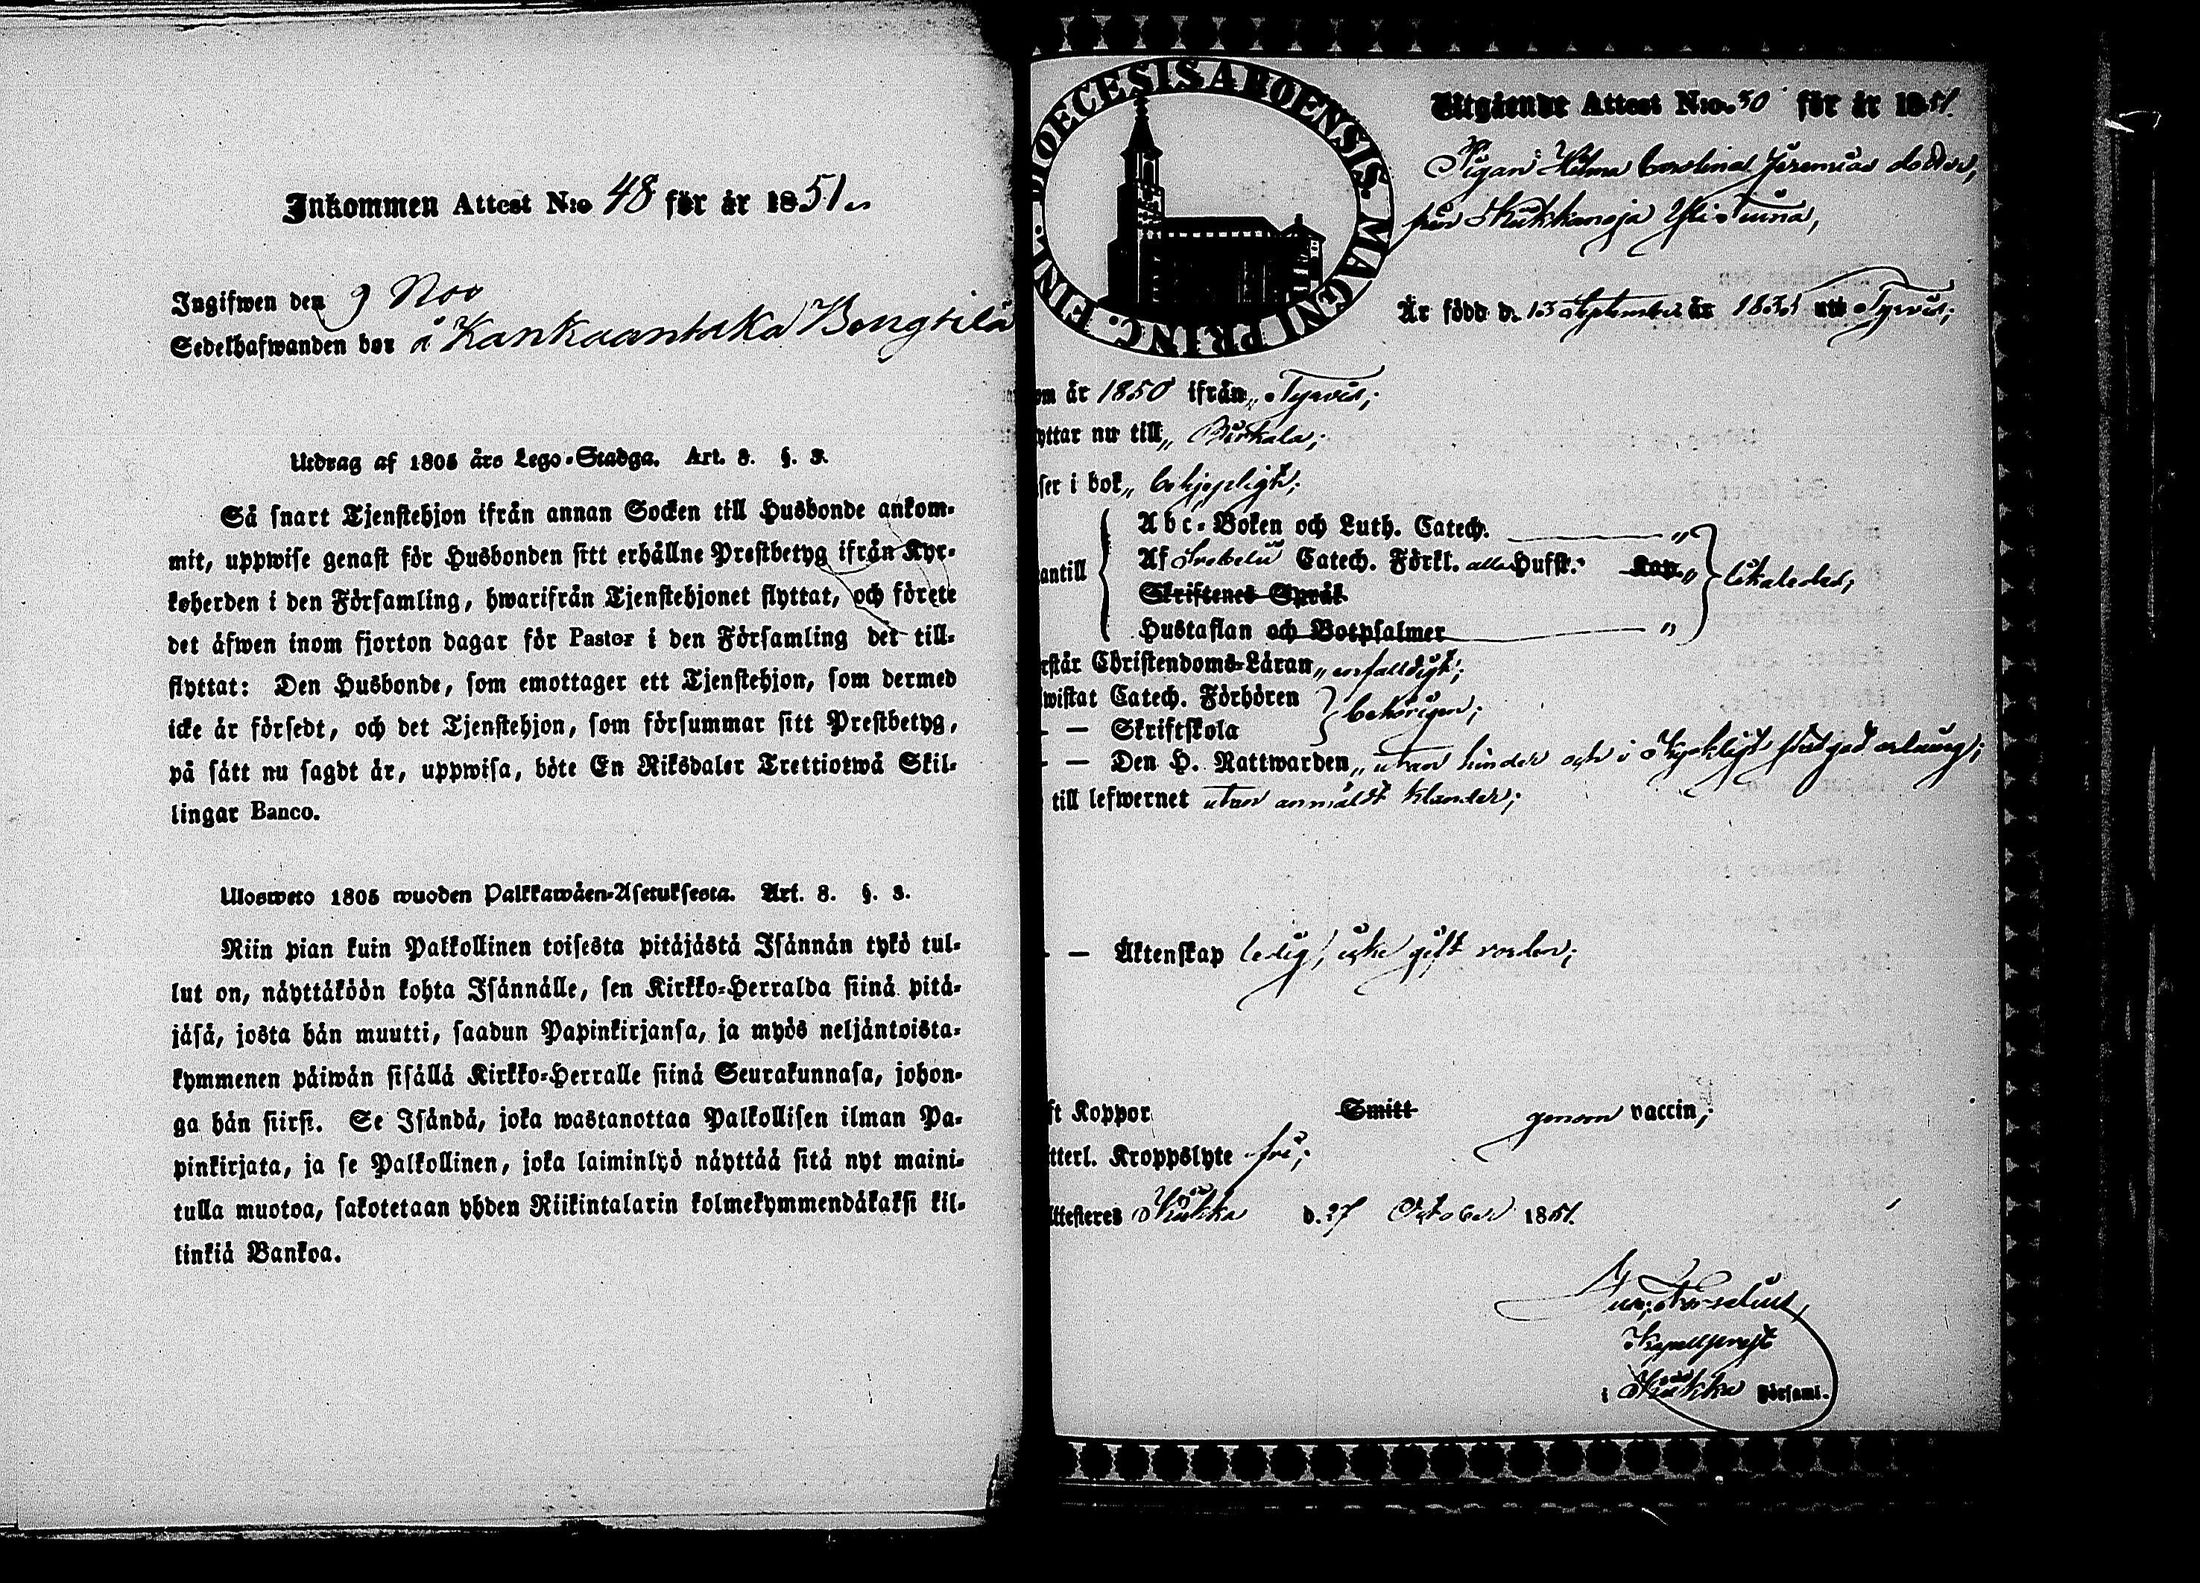 Inkommen Attest N:o 48 för år 1851.
Ingifwen den 9 Nov
Sedelhafwanden bor å Kankaantaka Bengtilä
Utdrag af 1805 års Lego-Stadga. Art. 8. §. 3.
Så snart Tjenstehjon ifrån annan Socken till Husbonde ankom-
mit, uppwise genast för Husbonden sitt erhållne Prestbetyg ifrån Kyr-
koherden i den Församling, hwarifrån Tjenstehjonet flyttat, och förete
det äfwen inom fjorton dagar för Pastor i den Församling det till-
flyttat: Den Husbonde, som emottager ett Tjenstehjon, som dermed
icke är försedt, och det Tjenstehjon, som försummar sitt Prestbetyg,
på sätt nu sagdt är, uppwisa, böte En Riksdaler Trettiotwå Skil-
lingar Banco.
Ulosweto 1805 wuoden Palkkawäen-Asetuksesta. Art. 8. §. 3.
Niin pian kuin Palkollinen toisesta pitäjästä Isännän tykö tul-
lut on, näyttäköön kohta Isännälle, sen Kirkko-Herralda siinä pitä-
jäsä, josta hän muutti, saadun Papinkirjansa, ja myös neljäntoista-
kymmenen päiwän sisällä Kirkko-Herralle siinä Seurakunnasa, johon-
ga hän siirsi. Se Isändä, joka wastanottaa Palkollisen ilman Pa-
pinkirjata, ja se Palkollinen, joka laiminlyö näyttää sitä nyt maini-
tulla muotoa, sakotetaan yhden Riikintalarin kolmekymmendäkaksi kil-
linkiä Bankoa.
DIOECESIS ABOENSIS. MAGNI PRINC. FINL.
Utgående Attest N:o 50 för år 1851.
Pigan Helena Carolina Jeremias dotter,
från Kiukkanoja
Är född d. 13 September år 1831 uti Tyrvis;
om år 1850 ifrån Tyrvis;
yttar nu till Birkala;
ser i bok behjepligt;
antill
Abc-Boken och Luth. Catech.
Af Svebelii Catech. Förkl. alla Hufst. Kap.
Skriftenes Språk
likaledes;
Hustaflan och Botpsalmer
rstår Christendoms-Läran enfalldigt;
wistat Catech. Förhören
— Skriftskola
behörigen;
— Den H. Nattwarden utan hinder och i Kyrkligt stadgad ordning;
till lefwernet utan anmäldt klander;
— Äktenskap ledig, icke gift vorden;
ft Koppor Smitt genom vaccin;
tterl. Kroppslyte fri;
ttesteres Kiikka d. 27 October 1851.
Kapellprest
i Kiikka Församl.